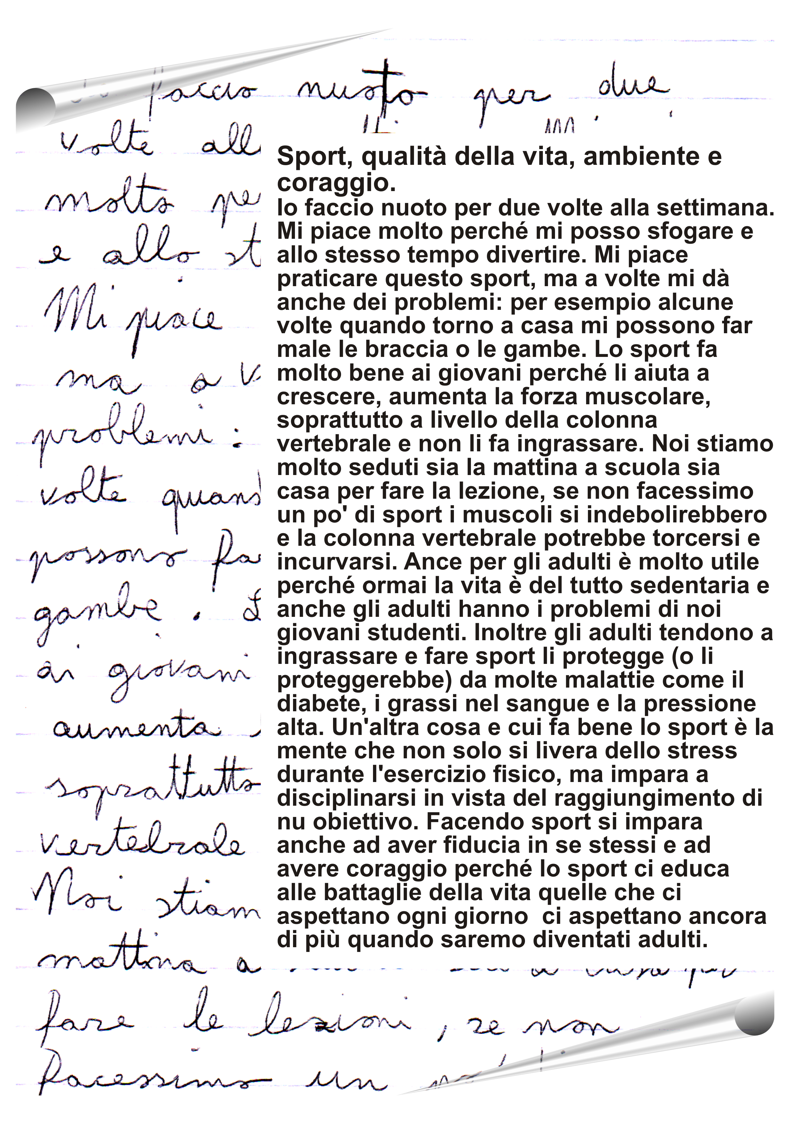 Io faccio nuoto per due
volte all
molto pe
e allo st
Mi piace
ma a v
problemi :
volte quand
possono fa
gambe . L
ai giovani
aumenta
soprattutto
vertebrale
Noi stiam
mattina a
fare le lezioni , se non
facessimo un po'
Sport, qualità della vita, ambiente e
coraggio.
Io faccio nuoto per due volte alla settimana.
Mi piace molto perché mi posso sfogare e
allo stesso tempo divertire. Mi piace
praticare questo sport, ma a volte mi dà
anche dei problemi: per esempio alcune
volte quando torno a casa mi possono far
male le braccia o le gambe. Lo sport fa
molto bene ai giovani perché li aiuta a
crescere, aumenta la forza muscolare,
soprattutto a livello della colonna
vertebrale e non li fa ingrassare. Noi stiamo
molto seduti sia la mattina a scuola sia
casa per fare la lezione, se non facessimo
un po' di sport i muscoli si indebolirebbero
e la colonna vertebrale potrebbe torcersi e
incurvarsi. Ance per gli adulti è molto utile
perché ormai la vita è del tutto sedentaria e
anche gli adulti hanno i problemi di noi
giovani studenti. Inoltre gli adulti tendono a
ingrassare e fare sport li protegge (o li
proteggerebbe) da molte malattie come il
diabete, i grassi nel sangue e la pressione
alta. Un'altra cosa e cui fa bene lo sport è la
mente che non solo si livera dello stress
durante l'esercizio fisico, ma impara a
disciplinarsi in vista del raggiungimento di
nu obiettivo. Facendo sport si impara
anche ad aver fiducia in se stessi e ad
avere coraggio perché lo sport ci educa
alle battaglie della vita quelle che ci
aspettano ogni giorno  ci aspettano ancora
di più quando saremo diventati adulti.